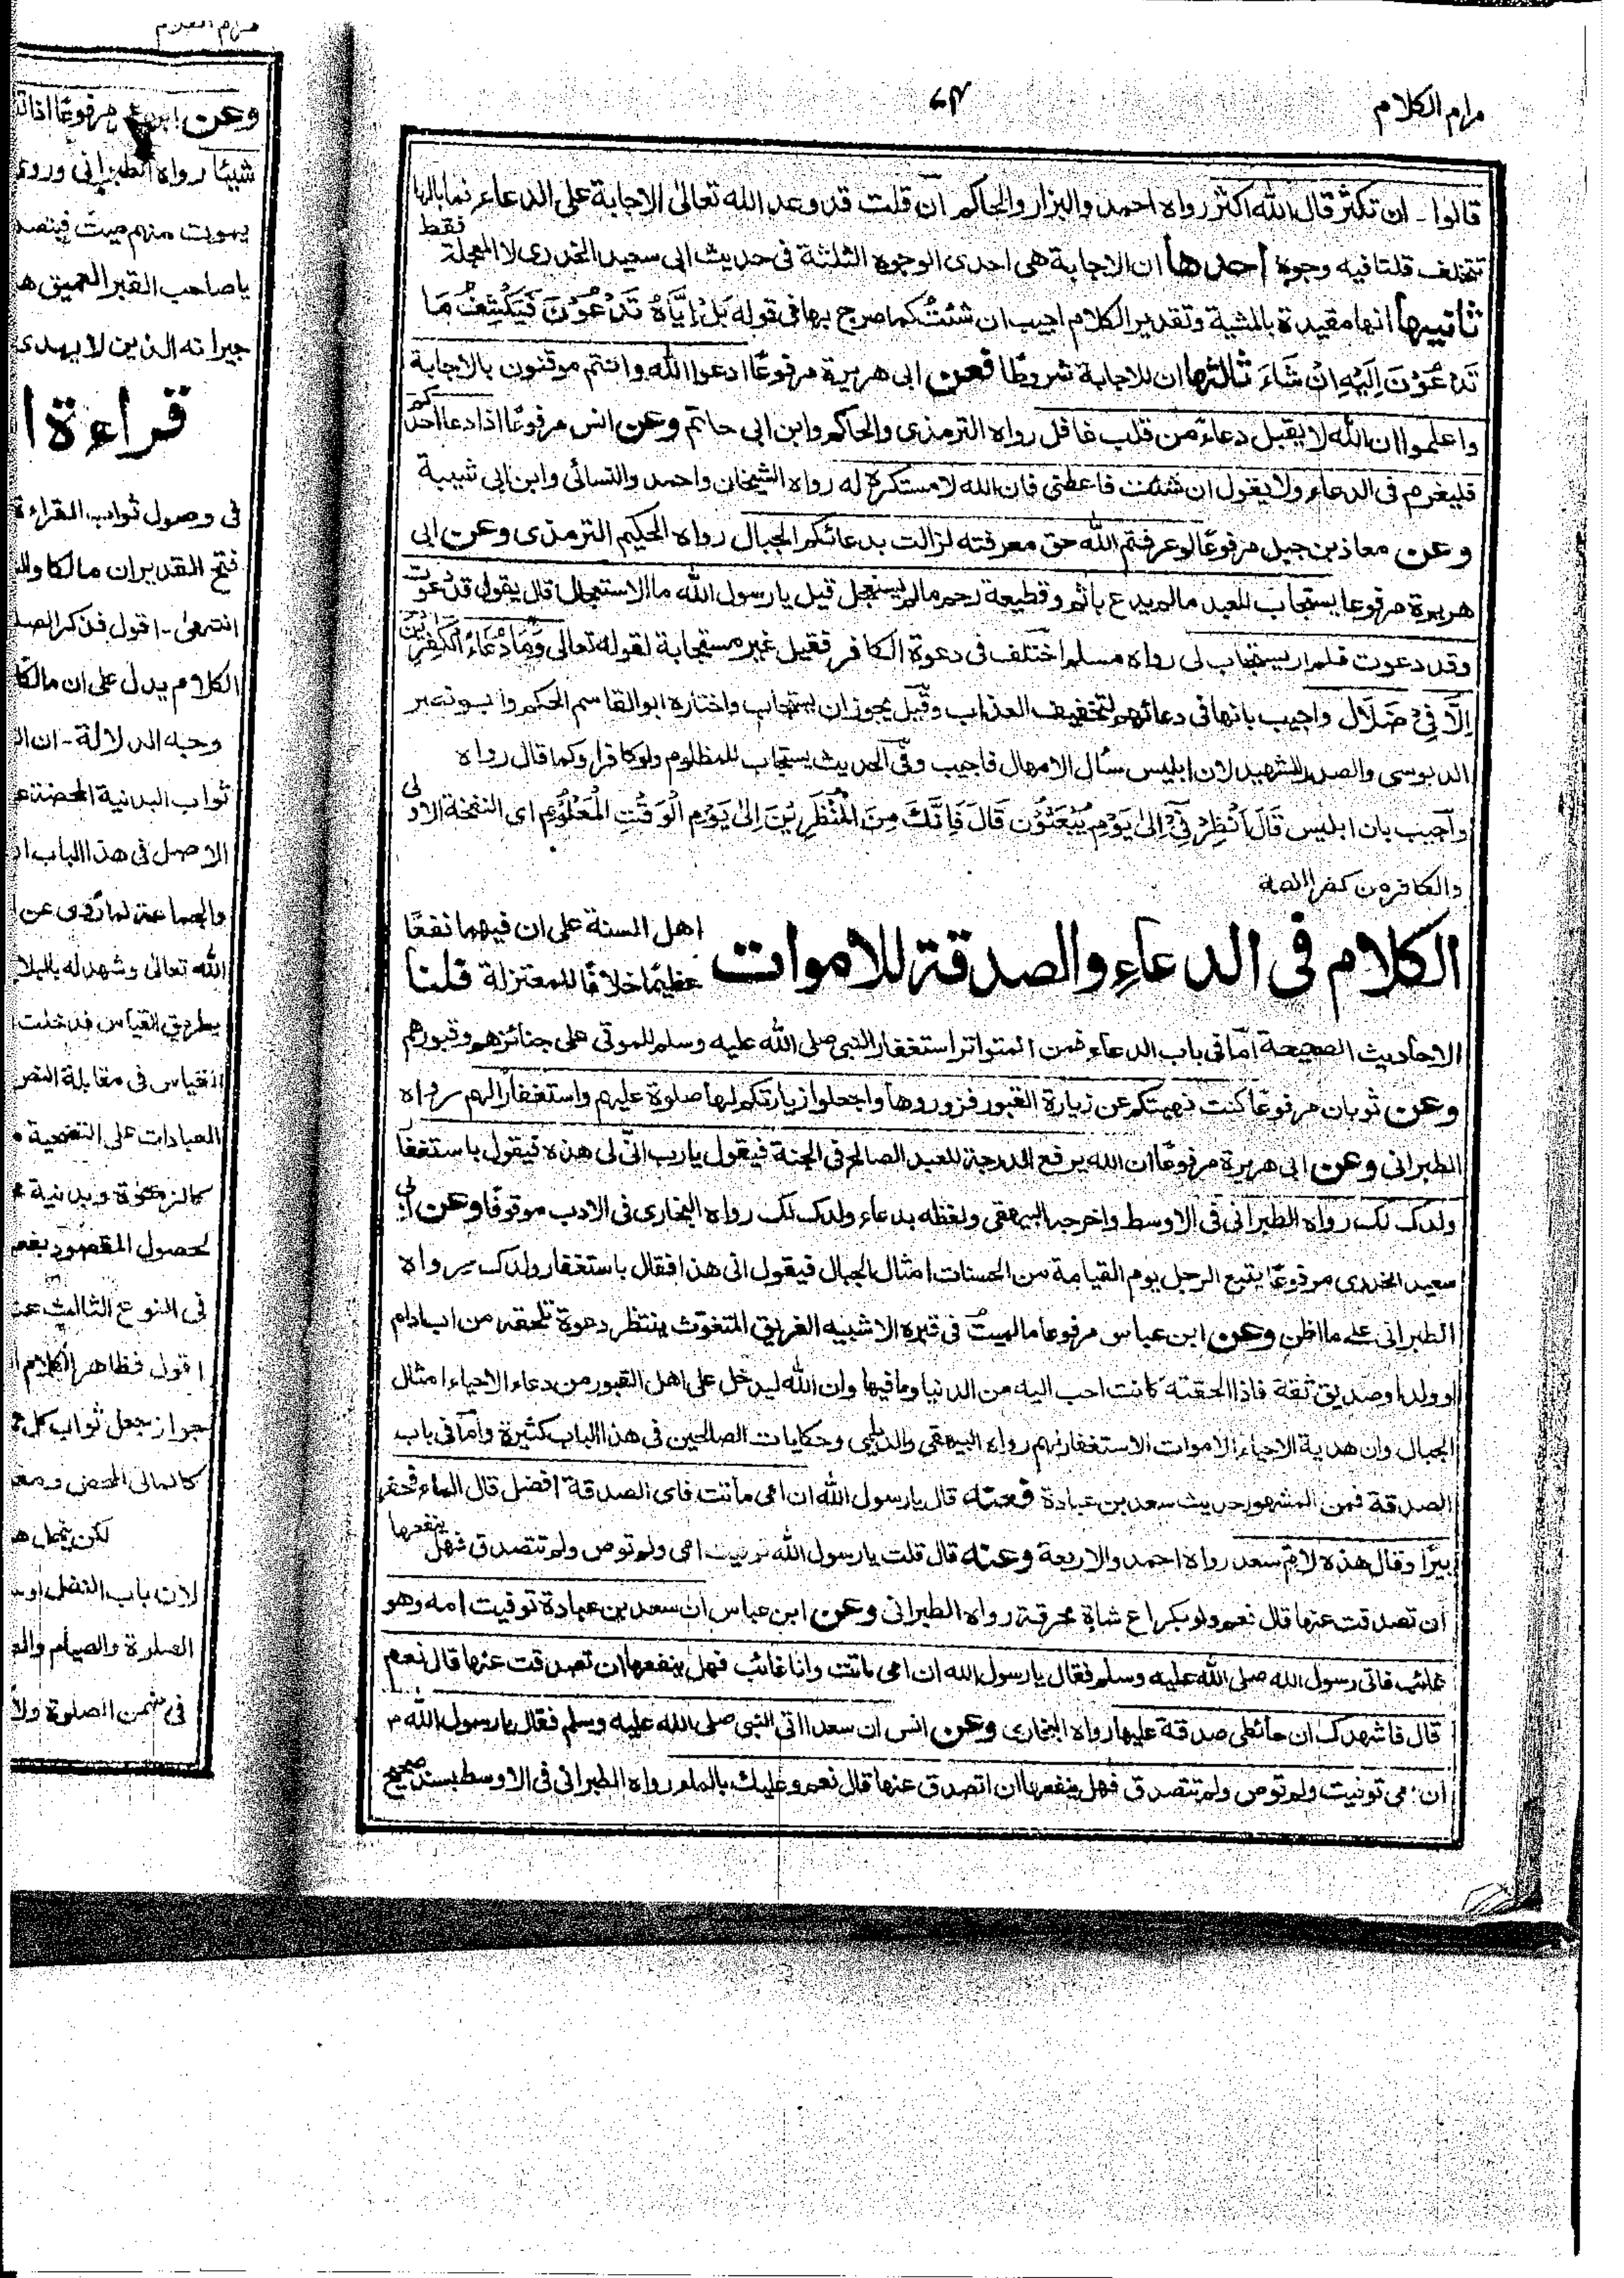 مرام الكلام
٦٤
قالوا - ان تكثر قال الله اكثر رواه احمد والبزار والحاكم ان قلت قد وعد الله تعالى الاجابة على الدعاء فما بالها
تتخلف قلنا فيه وجوه احدها ان الاجابة هى احدى الوجوه الثلثة فى حديث ابى سعيد الخدرى لا المعجلة فقط
ثانيها انها مقيدة بالمشية وتقدير الكلام اجيب ان شئتُ كما صرح بها فى قوله بَلْ اِيَّاهُ تَدْعُوْنَ فَيَكْشِفُ مَا
تَدْعُوْنَ اِلَيْهِ اِنْ شَاءَ ثالثها ان للاجابة شروطًا فعن ابى هريرة مرفوعًا ادعوا الله وانتم موقنون بالاجابة
واعلموا ان الله لا يقبل دعاءً من قلب غافل رواه الترمذى والحاكم وابن ابى حاتم وعن انس مرفوعًا اذا دعا احدكم
فليعزم فى الدعاء ولا يقول ان شئت فاعطنى فان الله لا مستكره له رواه الشيخان واحمد والنسائى وابن ابى شيبة
وعن معاذ بن جبل مرفوعًا لو عرفتم الله حق معرفته لزالت بدعائكم الجبال رواه الحكيم الترمذى وعن ابى
هريرة مرفوعا يستجاب للعبد مالم يدع باثم وقطيعة رحم مالم يستعجل قيل يا رسول الله ما الاستعجال قال يقول قد دعوت
وقد دعوت فلم ار يستجاب لى رواه مسلم اختلف فى دعوة الكافر فقيل غير مستجابة لقوله تعالى وَمَا دُعَاءُ الْكٰفِرِيْنَ
اِلَّا فِىْ ضَلَال واجيب بانها فى دعائهم لتخفيف العذاب وقيل يجوز ان يستجاب واختاره ابو القاسم الحكيم وابو نصر
الدبوسى والصدر الشهيد لان ابليس سأل الامهال فاجيب وفى الحديث يستجاب للمظلوم ولو كافرا وكما قال رواه
واجيب بان ابليس قَالَ اَنْظِرْنِىْ اِلٰى يَوْمِ يُبْعَثُوْن قَالَ فَاِنَّكَ مِنَ الْمُنْظَرِيْنَ اِلٰى يَوْمِ الْوَقْتِ الْمَعْلُوْمِ اى النفخة الاولى
والكافر من كفر
الكلام فى الدعاءِ والصدقة للاموات
اهل السنة على ان فيهما نفعًا
عظيمًا خلافًا للمعتزلة قلنا
الاحاديث الصحيحة اما فى باب الدعاء فمن المتواتر استغفار النبى صلى الله عليه وسلم للموتى على جنائزهم وقبورهم
وعن ثوبان مرفوعًا كنت نهيتكم عن زيارة القبور فزوروها واجعلوا زيارتكم لها صلوة عليهم واستغفارًا لهم رواه
الطبرانى وعن ابى هريرة مرفوعًا ان الله يرفع الدرجة للعبد الصالح فى الجنة فيقول يا رب انّٰى لى هذه فيقول باستغفار
ولدك لك رواه الطبرانى فى الاوسط واخرجه البيهقى ولفظه بدعاء ولدك لك رواه البخارى فى الادب موقوفًا وعن ابى
سعيد الخدرى مرفوعًا يتبع الرجل يوم القيامة من الحسنات امثال الجبال فيقول انى هذا فقال باستغفار ولدك رواه
الطبرانى على ما اظن وعن ابن عباس مرفوعا ما الميت فى قبره الا شبيه الغريق المتغوث ينتظر دعوة تلحقه من اب او ام
او ولد او صديق ثقة فاذا الحقته كانت احب اليه من الدنيا وما فيها وان الله ليدخل على اهل القبور من دعاء الاحياء امثال
الجبال وان هدية الاحياء للاموات الاستغفار لهم رواه البيهقى والديلمى وحكايات الصالحين فى هذا الباب كثيرة واما فى باب
الصدقة فمن المشهور حديث سعد بن عبادة فعنه قال يا رسول الله ان امى ماتت فاى الصدقة افضل قال الماء فحفر
بيرًا وقال هذه لام سعد رواه احمد والاربعة وعنه قال قلت يا رسول الله توفيت امى ولم توص ولم تتصدق فهل ينفعها
ان تصدقت عنها قال نعم ولو بكراع شاة محرقة رواه الطبرانى وعن ابن عباس ان سعد بن عبادة توفيت امه وهو
غائب فاتى رسول الله صلى الله عليه وسلم فقال يا رسول الله ان امى ماتت وانا غائب فهل ينفعها ان تصدقت عنها قال نعم
قال فاشهدك ان حائطى صدقة عليها رواه البخارى وعن انس ان سعدا اتى النبى صلى الله عليه وسلم فقال يا رسول الله
ان امى توفيت ولم توص ولم تتصدق فهل ينفعها ان اتصدق عنها قال نعم وعليك بالماء رواه الطبرانى فى الاوسط بسند صحيح
مرام الكلام
وعن مرفوعًا اذا
شيئا رواه الطبرانى وروى
يموت منهم ميت فيتصد
يا صاحب القبر العميق
جيرانه الذين لا يهدى
قراءة ا
فى وصول ثواب القراءة
فتح القدير ان مالكا
انتهى - اقول فذكر
الكلام يدل على ان مالكا
وجه الدلالة - ان
ثواب البدنية المحضة
الاصل فى هذا الباب
والجماعة لما روى عن
الله تعالى وشهد له
بطريق القياس فدخلت
القياس فى مقابلة النص
العبادات على التضحية
كالزكوة وبدنية
لحصول المقصود
فى النوع الثالث عند
اقول فظاهر الكلام
جواز جعل ثواب كل
كالمالى المحض
لكن يحمل
لان باب الفضل
الصلوة والصيام
فى ضمن الصلوة ولا